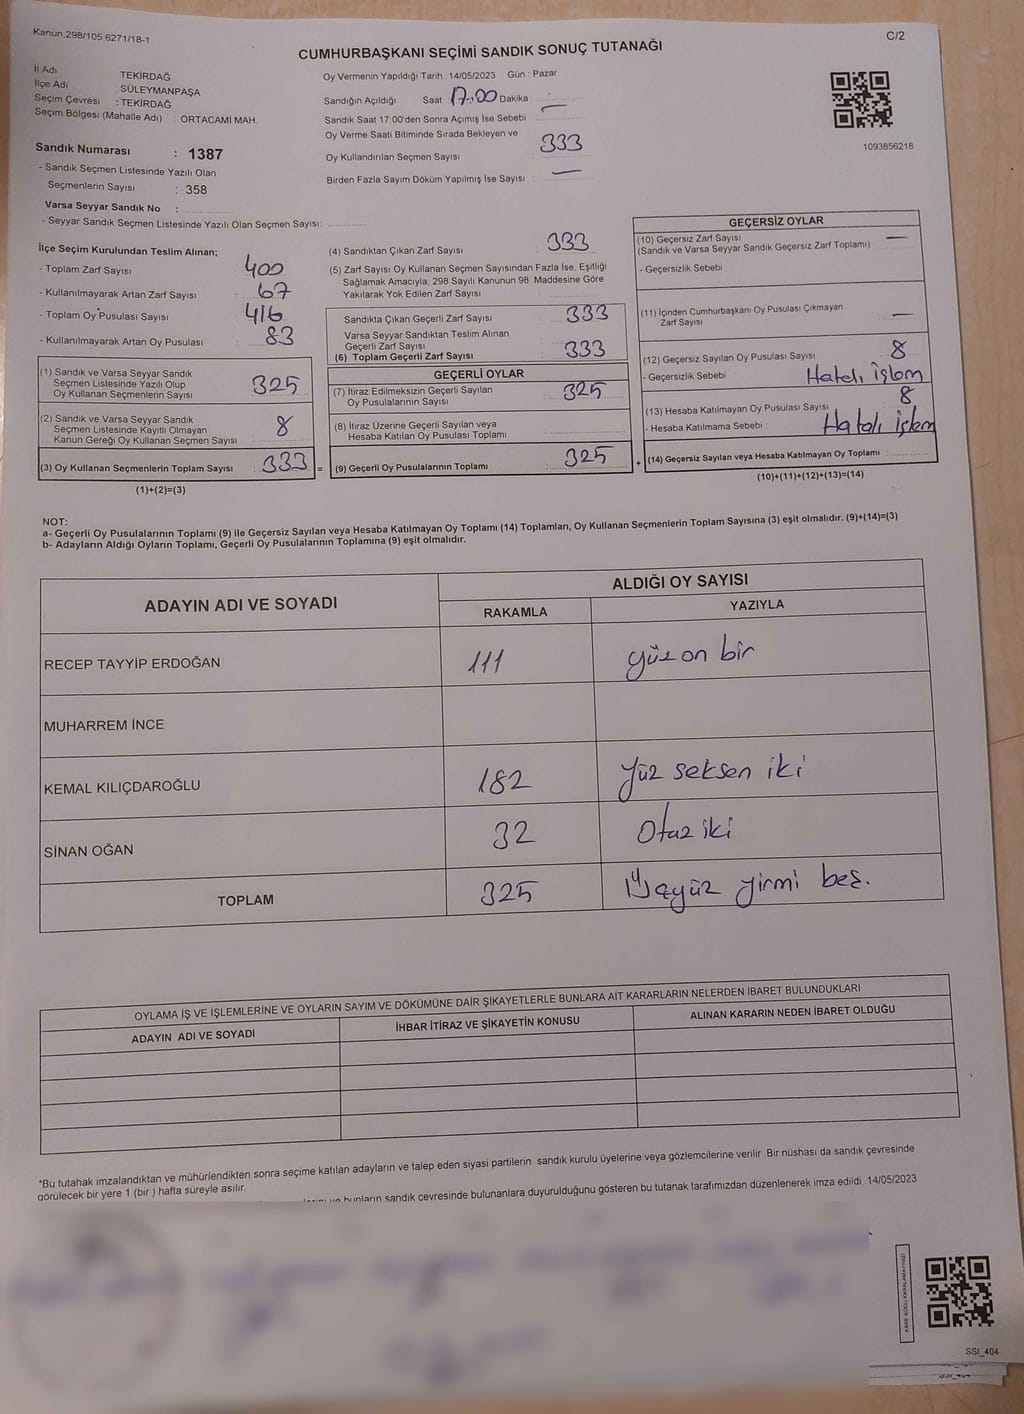 Kanun:298/105,6271/18-1
C/2
CUMHURBAŞKANI SEÇİMİ SANDIK SONUÇ TUTANAĞI
İl Adı TEKİRDAĞ
İlçe Adı SÜLEYMANPAŞA
Seçim Çevresi : TEKİRDAĞ
Seçim Bölgesi (Mahalle Adı) : ORTACAMİ MAH.
Sandık Numarası : 1387
- Sandık Seçmen Listesinde Yazılı Olan
Seçmenlerin Sayısı : 358
Varsa Seyyar Sandık No :
- Seyyar Sandık Seçmen Listesinde Yazılı Olan Seçmen Sayısı:
Oy Vermenin Yapıldığı Tarih : 14/05/2023 Gün : Pazar
Sandığın Açıldığı Saat 17.00 Dakika :
Sandık Saat 17:00'den Sonra Açımış İse Sebebi : —
Oy Verme Saati Bitiminde Sırada Bekleyen ve
Oy Kullandırılan Seçmen Sayısı : 333
Birden Fazla Sayım Döküm Yapılmış İse Sayısı : —
1093856218
İlçe Seçim Kurulundan Teslim Alınan;
- Toplam Zarf Sayısı : 400
- Kullanılmayarak Artan Zarf Sayısı : 67
- Toplam Oy Pusulası Sayısı : 416
- Kullanılmayarak Artan Oy Pusulası : 83
(1) Sandık ve Varsa Seyyar Sandık
Seçmen Listesinde Yazılı Olup
Oy Kullanan Seçmenlerin Sayısı : 325
(2) Sandık ve Varsa Seyyar Sandık
Seçmen Listesinde Kayıtlı Olmayan
Kanun Gereği Oy Kullanan Seçmen Sayısı : 8
(3) Oy Kullanan Seçmenlerin Toplam Sayısı : 333 =
(1)+(2)=(3)
(4) Sandıktan Çıkan Zarf Sayısı : 333
(5) Zarf Sayısı Oy Kullanan Seçmen Sayısından Fazla İse, Eşitliği
Sağlamak Amacıyla; 298 Sayılı Kanunun 98. Maddesine Göre
Yakılarak Yok Edilen Zarf Sayısı :
Sandıkta Çıkan Geçerli Zarf Sayısı : 333
Varsa Seyyar Sandıktan Teslim Alınan
Geçerli Zarf Sayısı :
(6) Toplam Geçerli Zarf Sayısı : 333
GEÇERLİ OYLAR
(7) İtiraz Edilmeksizin Geçerli Sayılan
Oy Pusulalarının Sayısı : 325
(8) İtiraz Üzerine Geçerli Sayılan veya
Hesaba Katılan Oy Pusulası Toplamı :
(9) Geçerli Oy Pusulalarının Toplamı : 325 +
GEÇERSİZ OYLAR
(10) Geçersiz Zarf Sayısı : —
(Sandık ve Varsa Seyyar Sandık Geçersiz Zarf Toplamı)
- Geçersizlik Sebebi
(11) İçinden Cumhurbaşkanı Oy Pusulası Çıkmayan
Zarf Sayısı : —
(12) Geçersiz Sayılan Oy Pusulası Sayısı : 8
- Geçersizlik Sebebi : Hatalı işlem
(13) Hesaba Katılmayan Oy Pusulası Sayısı : 8
- Hesaba Katılmama Sebebi : Hatalı işlem
(14) Geçersiz Sayılan veya Hesaba Katılmayan Oy Toplamı :
(10)+(11)+(12)+(13)=(14)
NOT:
a- Geçerli Oy Pusulalarının Toplamı (9) ile Geçersiz Sayılan veya Hesaba Katılmayan Oy Toplamı (14) Toplamları, Oy Kullanan Seçmenlerin Toplam Sayısına (3) eşit olmalıdır. (9)+(14)=(3)
b- Adayların Aldığı Oyların Toplamı, Geçerli Oy Pusulalarının Toplamına (9) eşit olmalıdır.
ADAYIN ADI VE SOYADI ALDIĞI OY SAYISI
RAKAMLA YAZIYLA
RECEP TAYYİP ERDOĞAN 111 yüz on bir
MUHARREM İNCE
KEMAL KILIÇDAROĞLU 182 Yüz seksen iki
SİNAN OĞAN 32 Otuz iki
TOPLAM 325 Üçyüz yirmi beş.
OYLAMA İŞ VE İŞLEMLERİNE VE OYLARIN SAYIM VE DÖKÜMÜNE DAİR ŞİKAYETLERLE BUNLARA AİT KARARLARIN NELERDEN İBARET BULUNDUKLARI
ADAYIN ADI VE SOYADI İHBAR İTİRAZ VE ŞİKAYETİN KONUSU ALINAN KARARIN NEDEN İBARET OLDUĞU
*Bu tutahak imzalandıktan ve mühürlendikten sonra seçime katılan adayların ve talep eden siyasi partilerin sandık kurulu üyelerine veya gözlemcilerine verilir .Bir nüshası da sandık çevresinde
görülecek bir yere 1 (bir ) hafta süreyle asılır.
ve bunların sandık çevresinde bulunanlara duyurulduğunu gösteren bu tutanak tarafımızdan düzenlenerek imza edildi. 14/05/2023
SSI_404